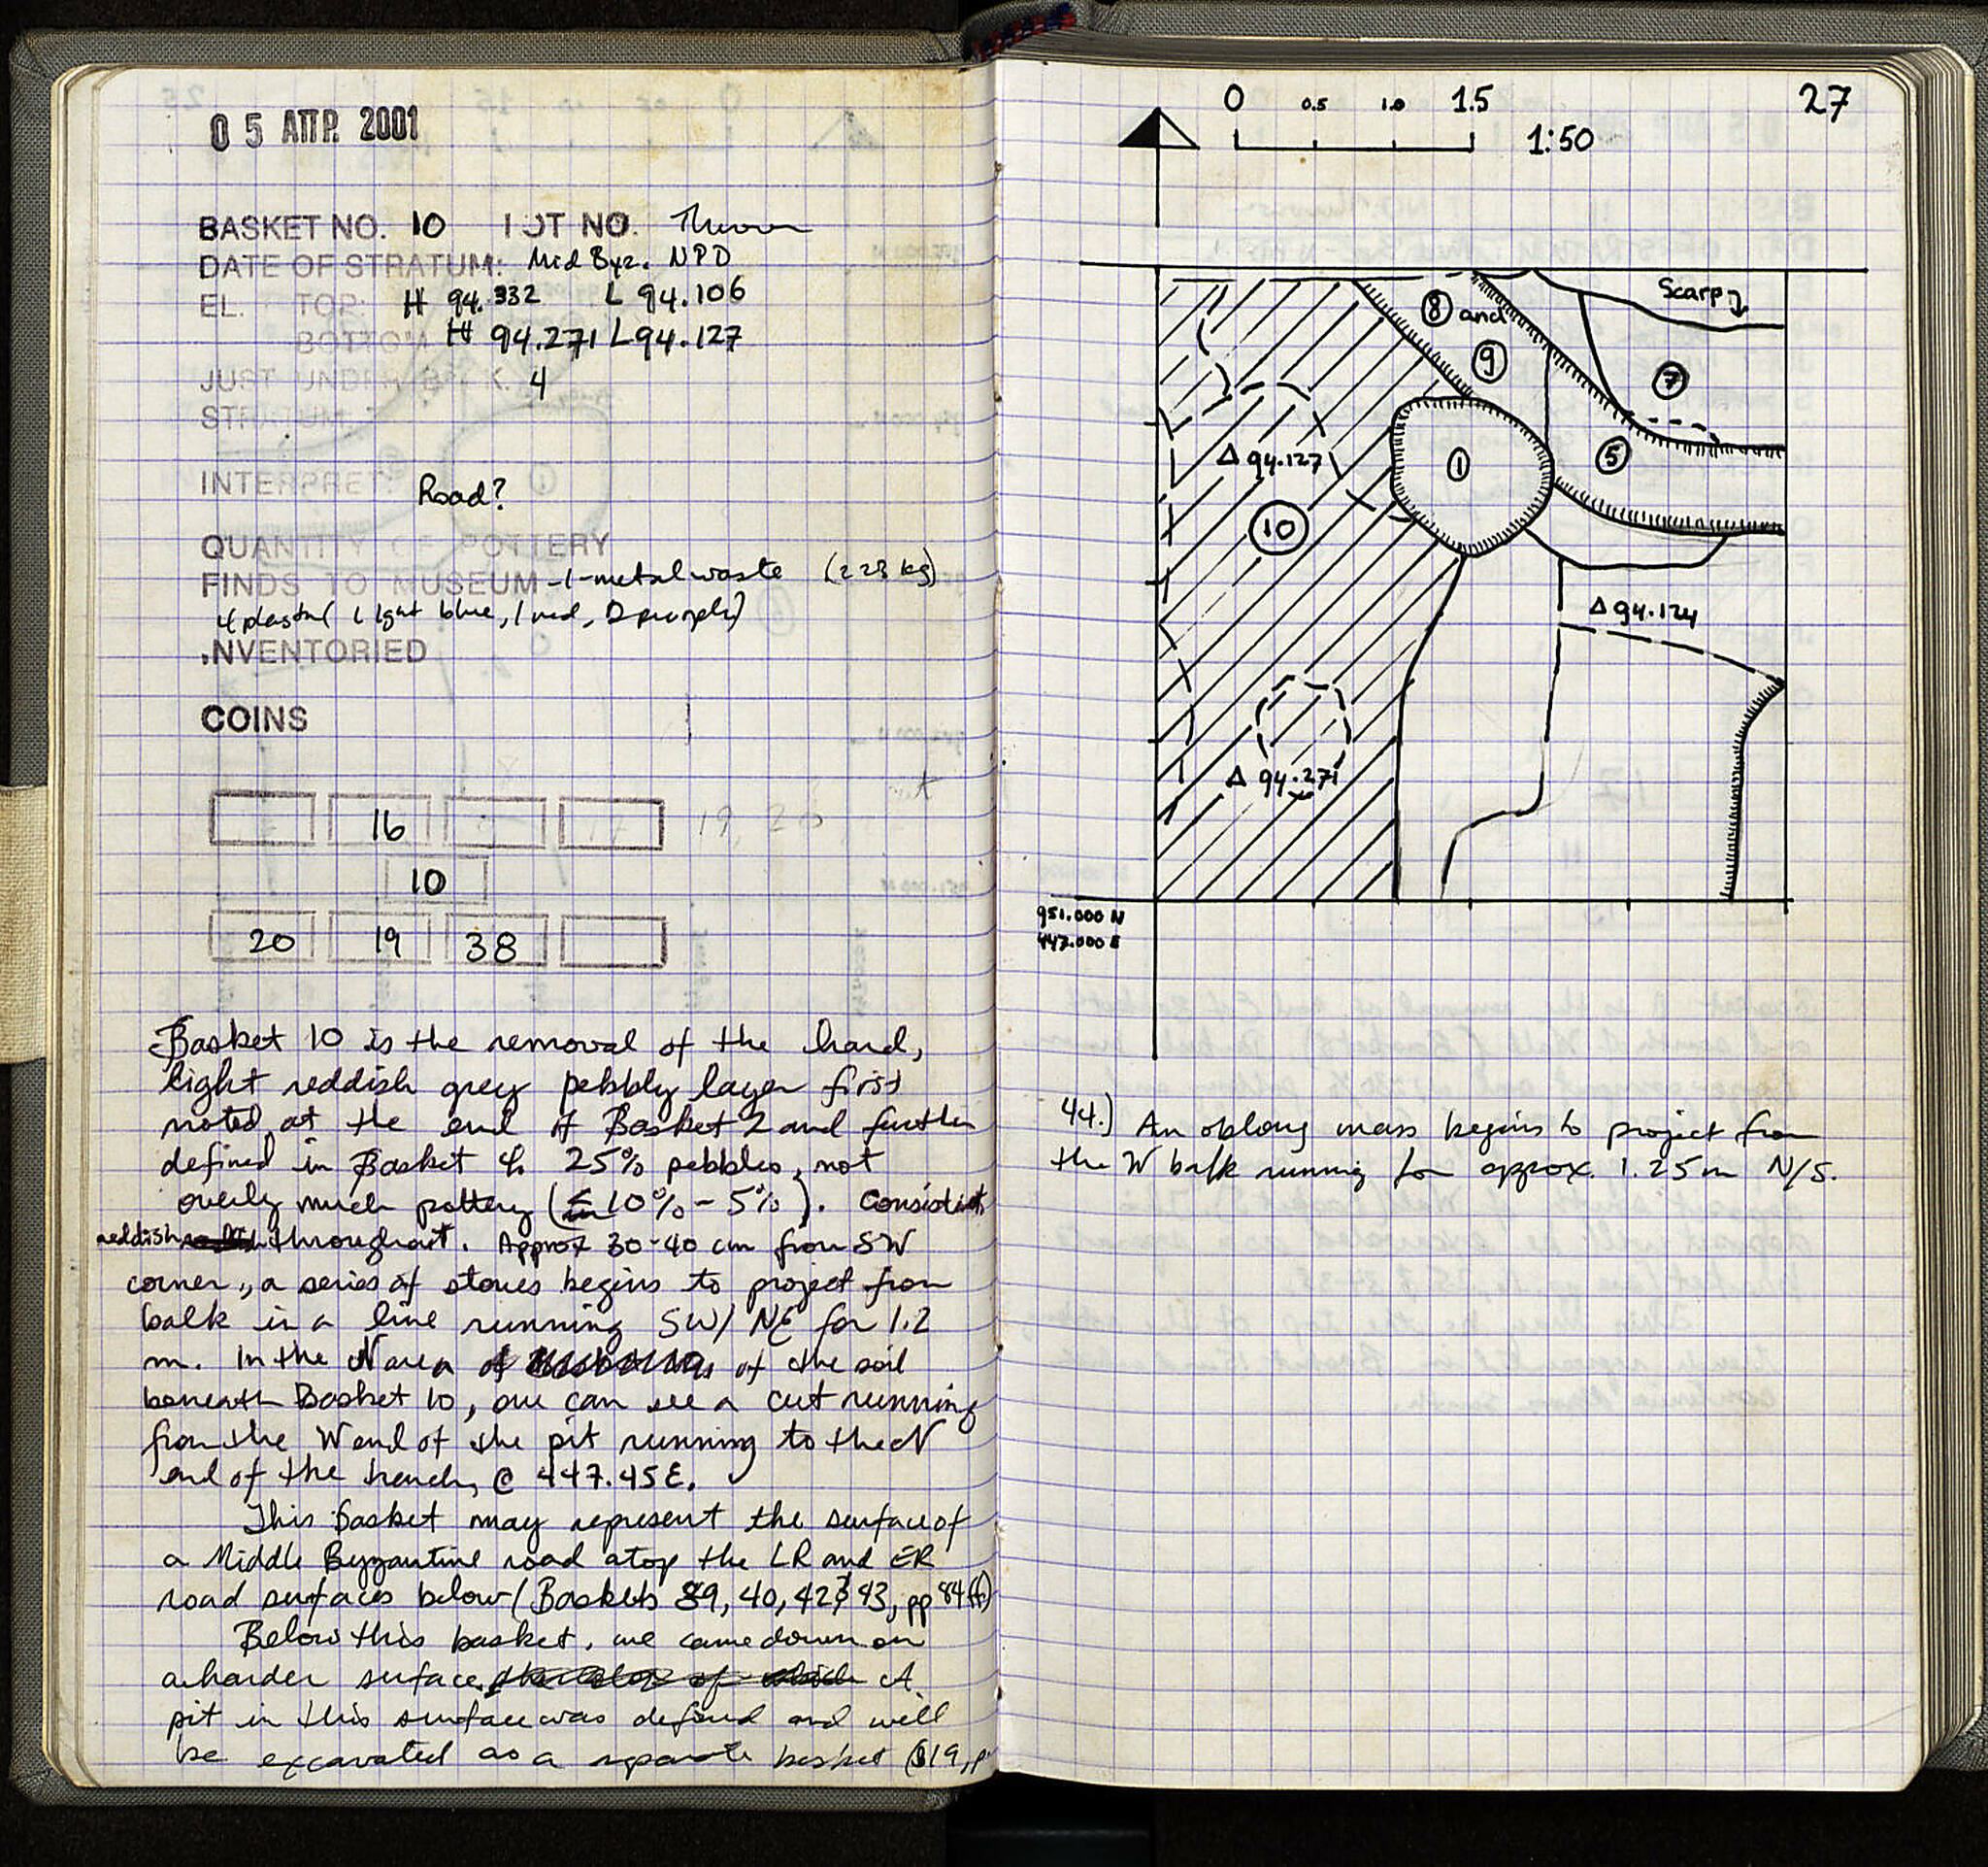 05 ΑΠΡ. 2001
BASKET NO. 10 LOT NO. Thrown
DATE OF STRATUM: Mid Byz. NPD
EL. TOP: H 94.332 L 94.106
BOTTOM H 94.271 L 94.127
JUST UNDER BSK. 4
STRATUM:
INTERPRET:
Road?
QUANTITY OF POTTERY
FINDS TO MUSEUM -1- metal waste (2.28 kg)
4 plaster (1 light blue, 1 red, 2 purple)
INVENTORIED
COINS
16 19, 20
10
20 19 38
Basket 10 is the removal of the hard,
light reddish grey pebbly layer first
noted at the end of Basket 2 and further
defined in Basket 4. 25% pebbles, not
overly much pottery (≤ 10% - 5%). Consistent
reddish throughout. Approx 30-40 cm from SW
corner, a series of stones begins to project from
balk in a line running SW/NE for 1.2
m. In the N area of the soil
beneath Basket 10, one can see a cut running
from the W end of the pit running to the N
end of the trench @ 447.45E.
This basket may represent the surface of
a Middle Byzantine road atop the LR and ER
road surfaces below (Baskets 39, 40, 42 & 43, pp 84 ff)
Below this basket, we came down on
a harder surface. A
pit in this surface was defined and will
be excavated as a separate basket (B19, p.
27
0 0.5 1.0 1.5
1:50
Scarp
8 and
9
7
1
5
Δ 94.127
10
Δ 94.124
Δ 94.271
951.000 N
447.000 E
44.) An oblong mass begins to project from
the W balk running for approx. 1.25m N/S.